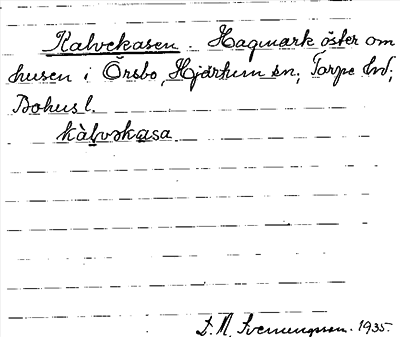 Kalvekasen. Hagmark öster om
husen i Örsbo, Hjärtum sn; Torpe hd;
Bohusl.
kàlvəkasa
S. M. Svenungsson. 1935.